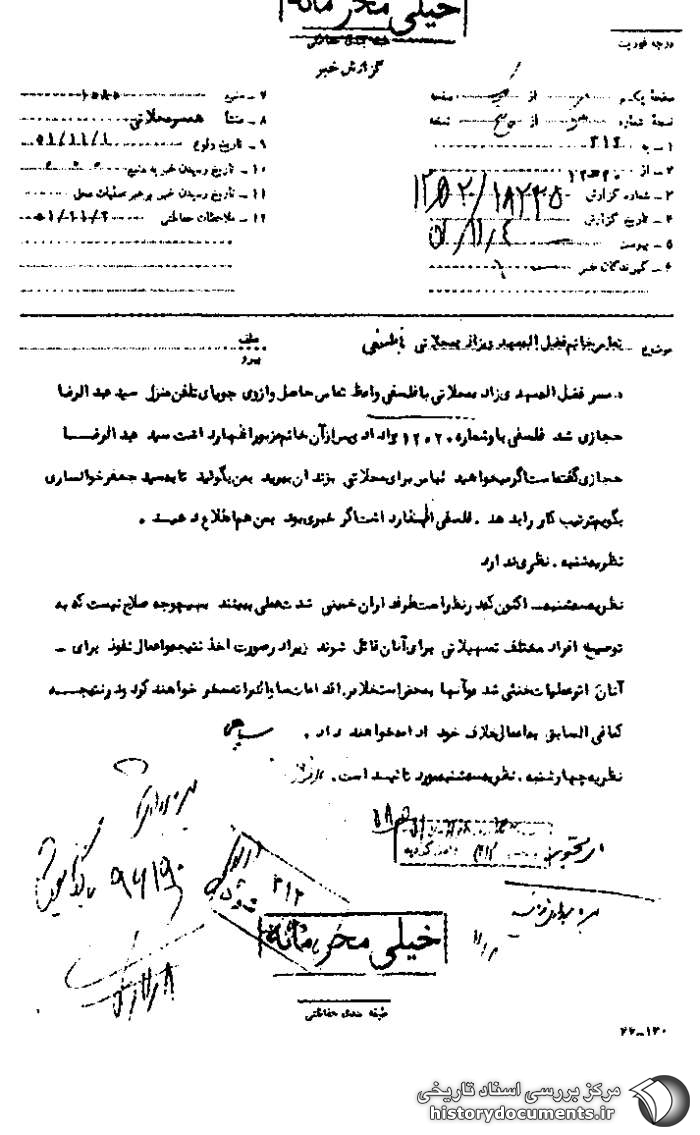 خیلی محرمانه
طبقه بندی حفاظتی
درجه فوریت
گزارش خبر
صفحه یکم از صفحه
نسخه شماره از نسخه
۱ـ به ۳۱۲
۲ـ از ۲۰ ه ۱۲
۳ـ شماره گزارش ۱۸۲۳۵/ ۲۰ ه ۱۲
۴ـ تاریخ گزارش ۵۱/۱۱/۴
۵ـ پیوست
۶ـ گیرندگان خبر
۷ـ منبع
۸ـ منشأ همسر محلاتی
۹ـ تاریخ وقوع ۵۱/۱۱/۱
۱۰ـ تاریخ رسیدن خبر به منبع
۱۱ـ تاریخ رسیدن خبر به رهبر عملیات محل
۱۲ـ ملاحظات حفاظتی ۵۱/۱۱/۲
موضوع تماس خانم فضل الله مهدی زاده محلاتی با فلسفی
عطف
پیرو
همسر فضل الله مهدی زاده محلاتی با فلسفی واعظ تماس حاصل و از وی جویای تلفن منزل سید عبدالرضا
حجازی شد فلسفی با و شماره داد پس از آن خانم مزبور اظهار داشت سید عبدالرضا
حجازی گفته است اگر میخواهید تماس برای محلاتی بزندان ببرید بمن بگوئید تا به سید جعفر خوانساری
بگویم ترتیب کار را بدهد . فلسفی اظهار داشت اگر خبری بود بمن هم اطلاع دهید .
نظریه شنبه . نظری ندارد
نظریه سه شنبه ـ اکنون که در نظر است طرفداران خمینی شدت عملی ببینند بهیچوجه صلاح نیست که به
توصیه افراد مختلف تسهیلاتی برای آنان قائل شوند زیرا در صورت اخذ نتیجه و اعمال نفوذ برای ـ
آنان اثر عملیات خنثی شده و آنها بمحض استخلاص اقدامات ما را تمسخر خواهند کرد و در نتیجه
کمافی السابق به اعمال خلاف خود ادامه خواهند داد . سپاهی
نظریه چهارشنبه . نظریه سه شنبه مورد تائید است .
۳۱۲
خیلی محرمانه
طبقه بندی حفاظتی
۲۶-۱۳۰
مرکز بررسی اسناد تاریخی
historydocuments.ir